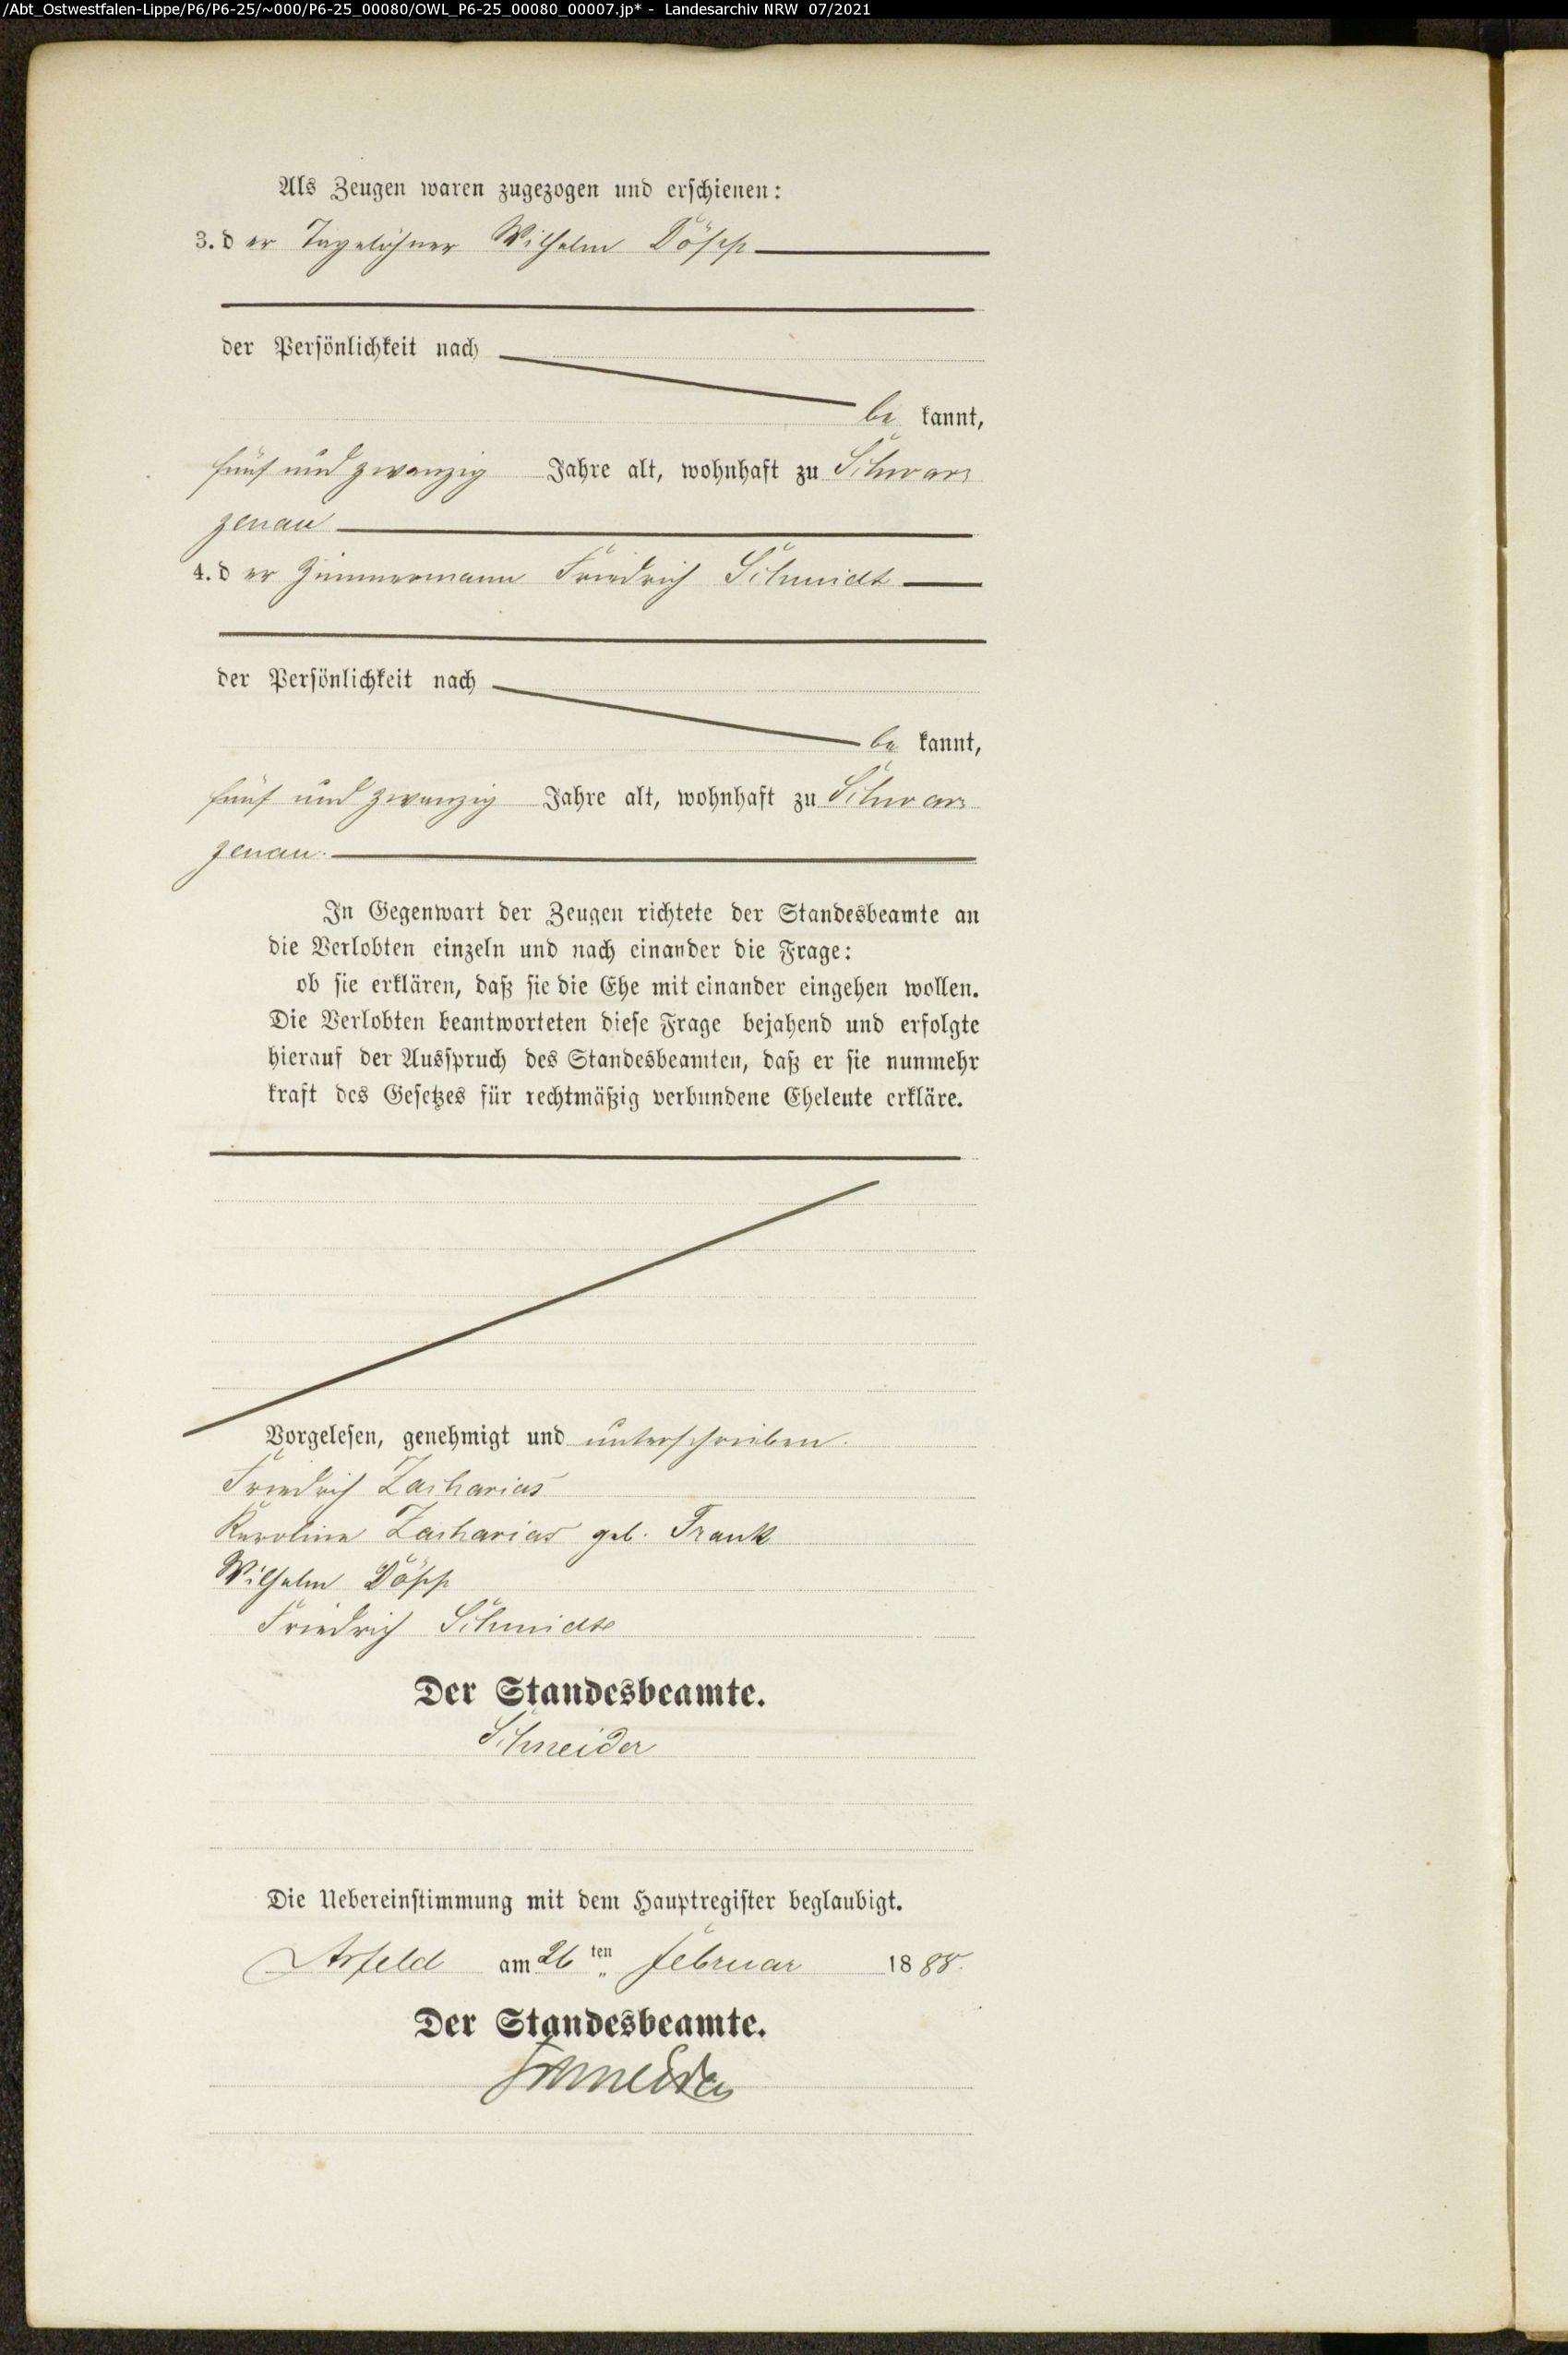 /Abt_Ostwestfalen-Lippe/P6/P6-25/~000/P6-25_00080/OWL_P6-25_00080_00007.jp* - Landesarchiv NRW 07/2021
Als Zeugen waren zugezogen und erschienen:
3. der Tagelöhner Wilhelm Döpp
der Persönlichkeit nach
be kannt,
fünf und zwanzig Jahre alt, wohnhaft zu Schwar
zenau
4. der Zimmermann Friedrich Schmidt
der Persönlichkeit nach
be kannt,
fünf und zwanzig Jahre alt, wohnhaft zu Schwar
zenau.
In Gegenwart der Zeugen richtete der Standesbeamte an
die Verlobten einzeln und nach einander die Frage:
ob sie erklären, daß sie die Ehe mit einander eingehen wollen.
Die Verlobten beantworteten diese Frage bejahend und erfolgte
hierauf der Ausspruch des Standesbeamten, daß er sie nunmehr
kraft des Gesetzes für rechtmäßig verbundene Eheleute erkläre.
Vorgelesen, genehmigt und unterschrieben.
Friedrich Zacharias
Karoline Zacharias geb. Frank
Wilhelm Döpp
Friedrich Schmidt
Der Standesbeamte.
Schneider
Die Uebereinstimmung mit dem Hauptregister beglaubigt.
Arfeld am 26ten Februar 1888.
Der Standesbeamte.
Schneider